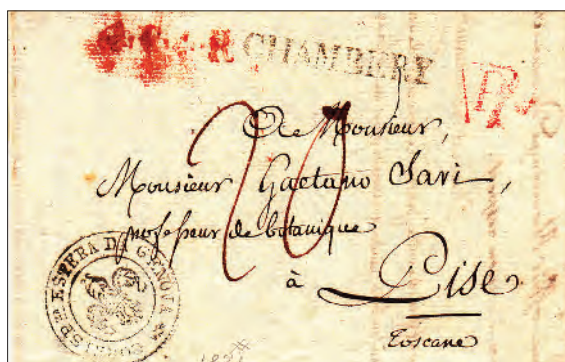 CHAMBERY
A Monsieur,
20
Monsieur Gaetano Savi,
professeur de botanique
à Pise
Toscane
CORRISP.ZA ESTERA DA GENOVA